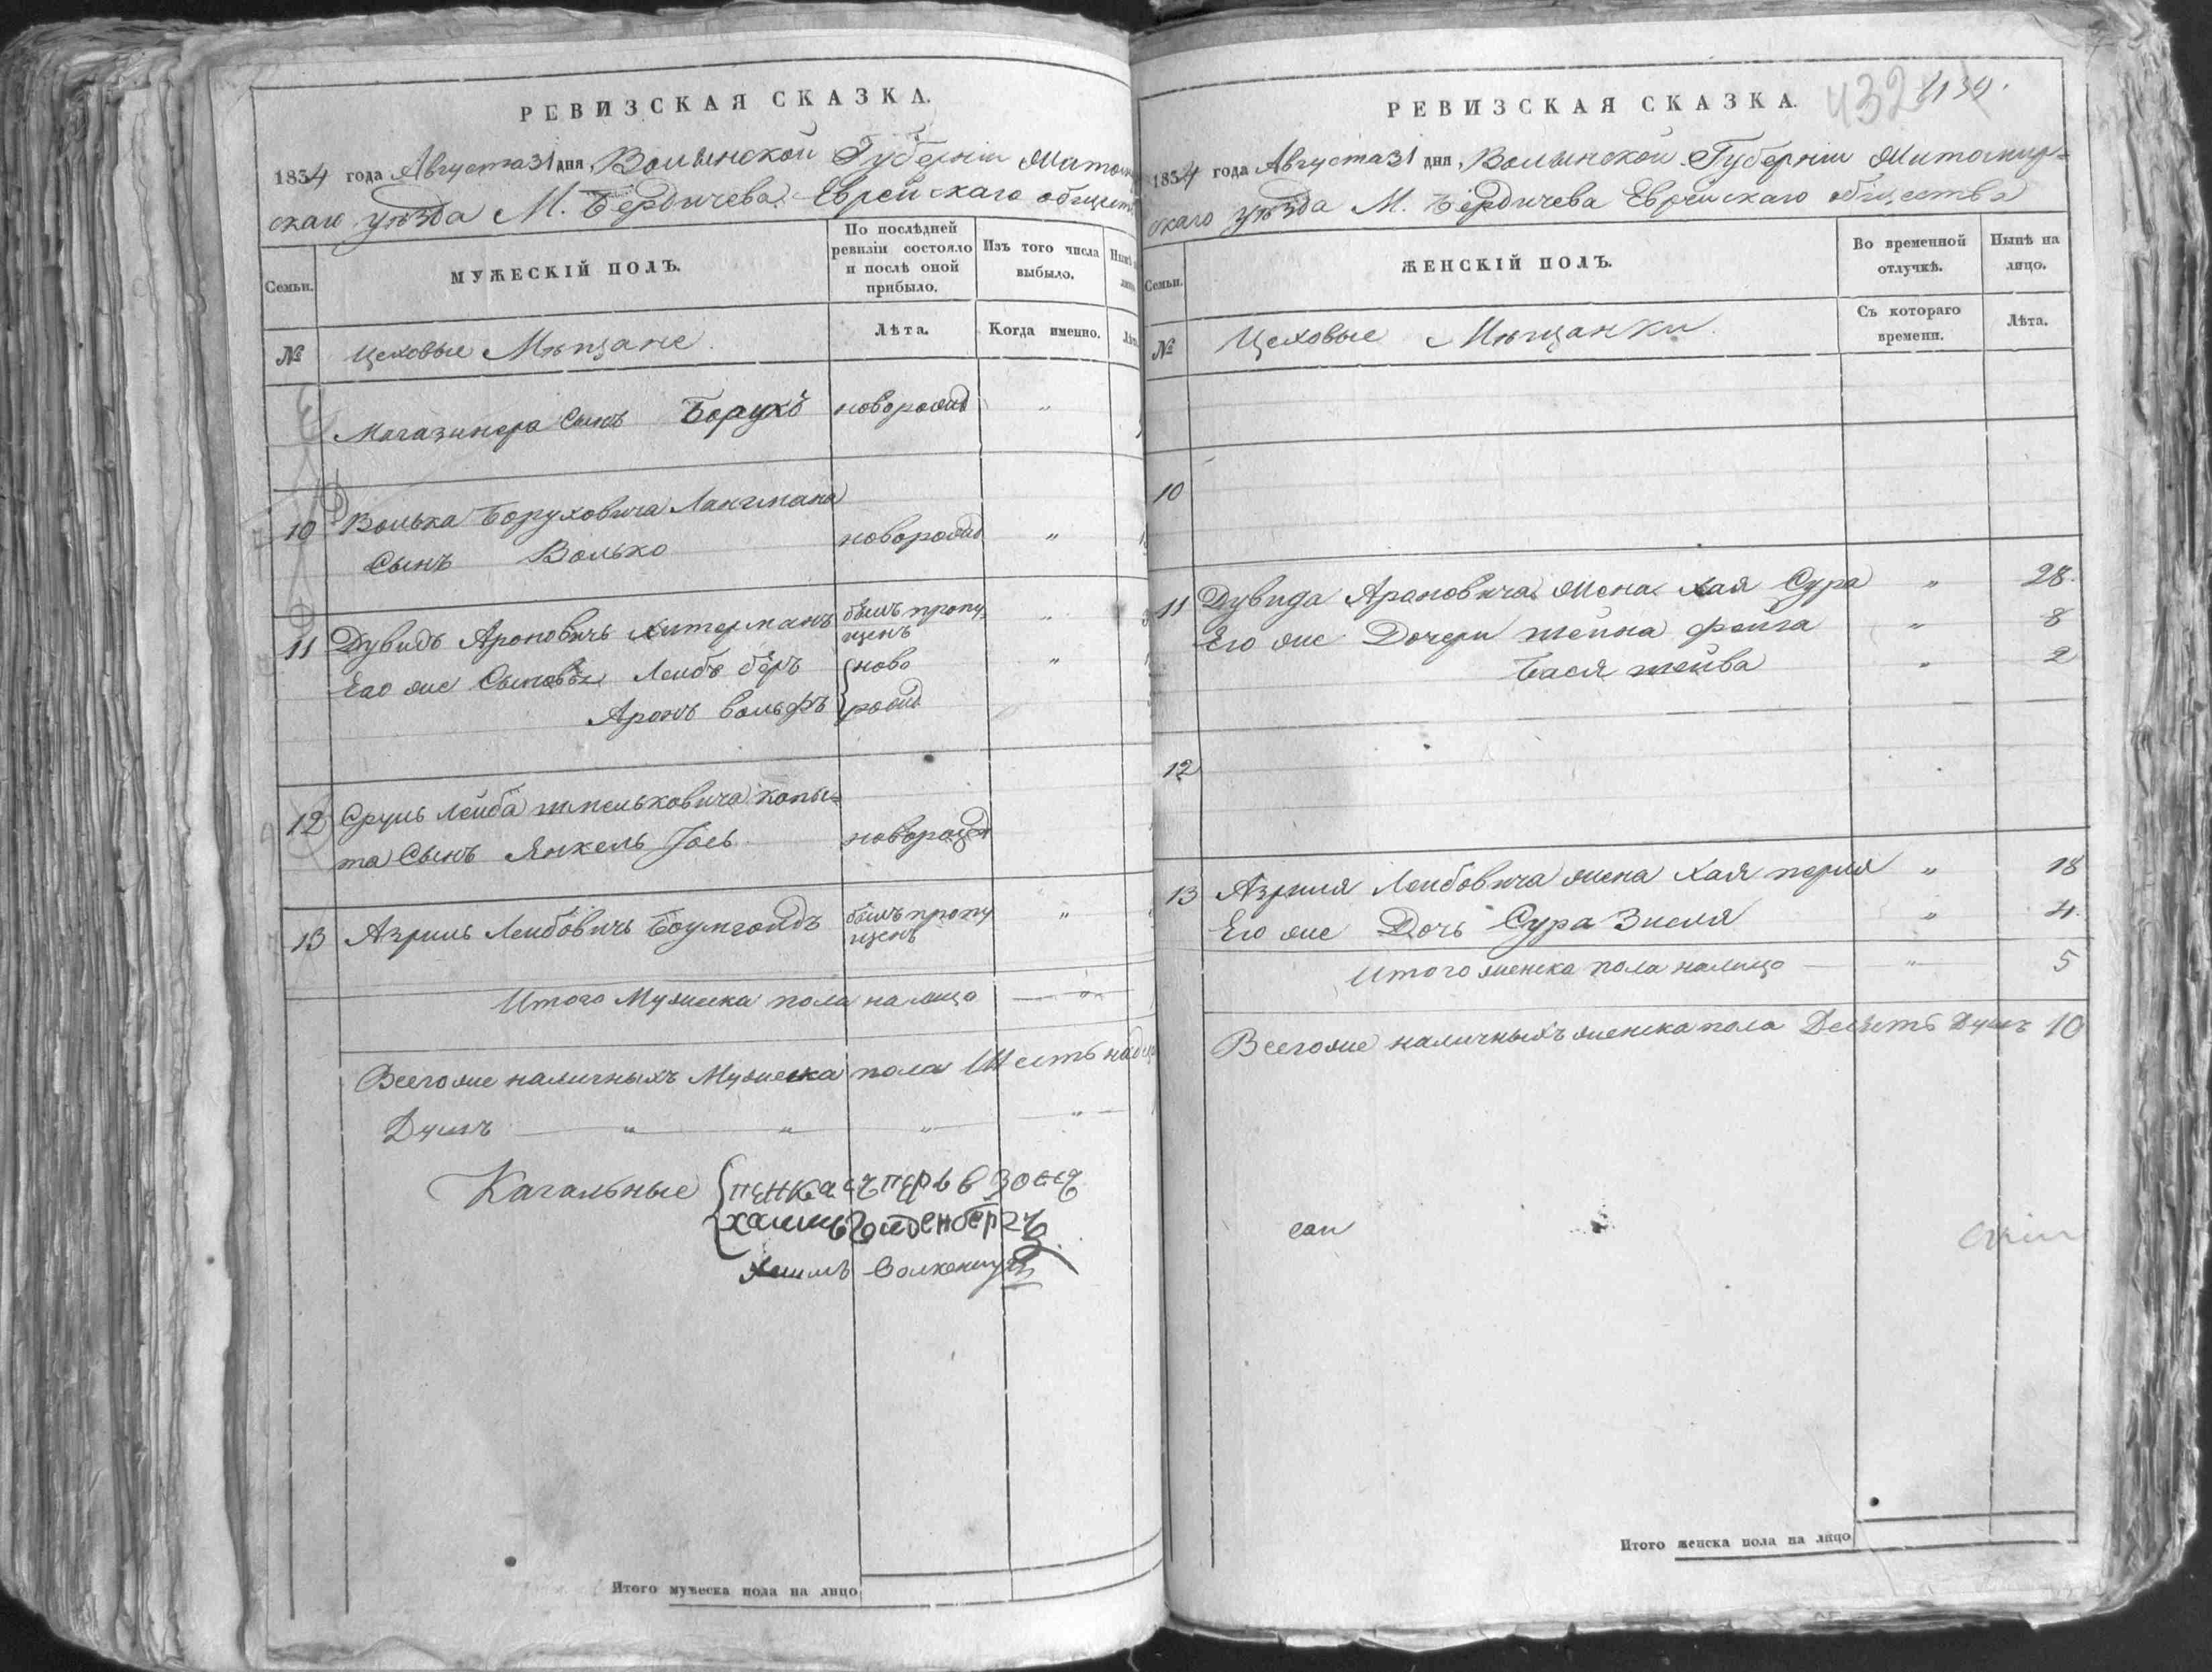 РЕВИЗСКАЯ СКАЗКА.
1834 года Августа 31 дня Волынской Губерніи Житом
скаго уѣзда М. Бердичева Еврейскаго общест
Семьи.
МУЖЕСКІЙ ПОЛЪ.
По послѣдней ревизіи состояло и послѣ оной прибыло.
Изъ того числа выбыло.
№
Цеховые Мѣщане.
Лѣта.
Когда именно.
Магазинера Сынъ Борухъ новорожд "
10 Волька Боруховича Лангмана
Сынъ Волько новорожд "
11 Дувидъ Ароновичъ Хитерманъ былъ пропу "
щенъ
Его же Сыновья Лейбъ беръ ново "
Аронъ вольфъ рожд
12 Сруль Лейба шмельковича копы=
та Сынъ Янкель Іось новорожд
13 Азриль Лейбовичъ Боумголдъ былъ пропу "
щенъ
Итого Мужеска пола налицо "
Всего же наличныхъ Мужеска пола Шестьнад
Душъ " " " "
Кагальные
Хаимъ
Итого мужеска пола на лицо
РЕВИЗСКАЯ СКАЗКА.
432
1834 года Августа 31 дня Волынской Губерніи Житомир=
скаго уѣзда М. Бердичева Еврейскаго общества
Семьи.
ЖЕНСКІЙ ПОЛЪ.
Во временной отлучкѣ.
Нынѣ на лицо.
№
Цеховые Мѣщанки.
Съ котораго времени.
Лѣта.
10
11 Дувида Ароновича жена Хая Сура " 28.
Его же Дочери шейна фейга " 8
Бася шейва " 2
12
13 Азриля Лейбовича жена Хая перля " 18
Его же Дочь Сура Зисля " 4.
Итого женска пола налицо " 5
Всего же наличныхъ женска пола Десять Душъ 10
Итого женска пола на лицо